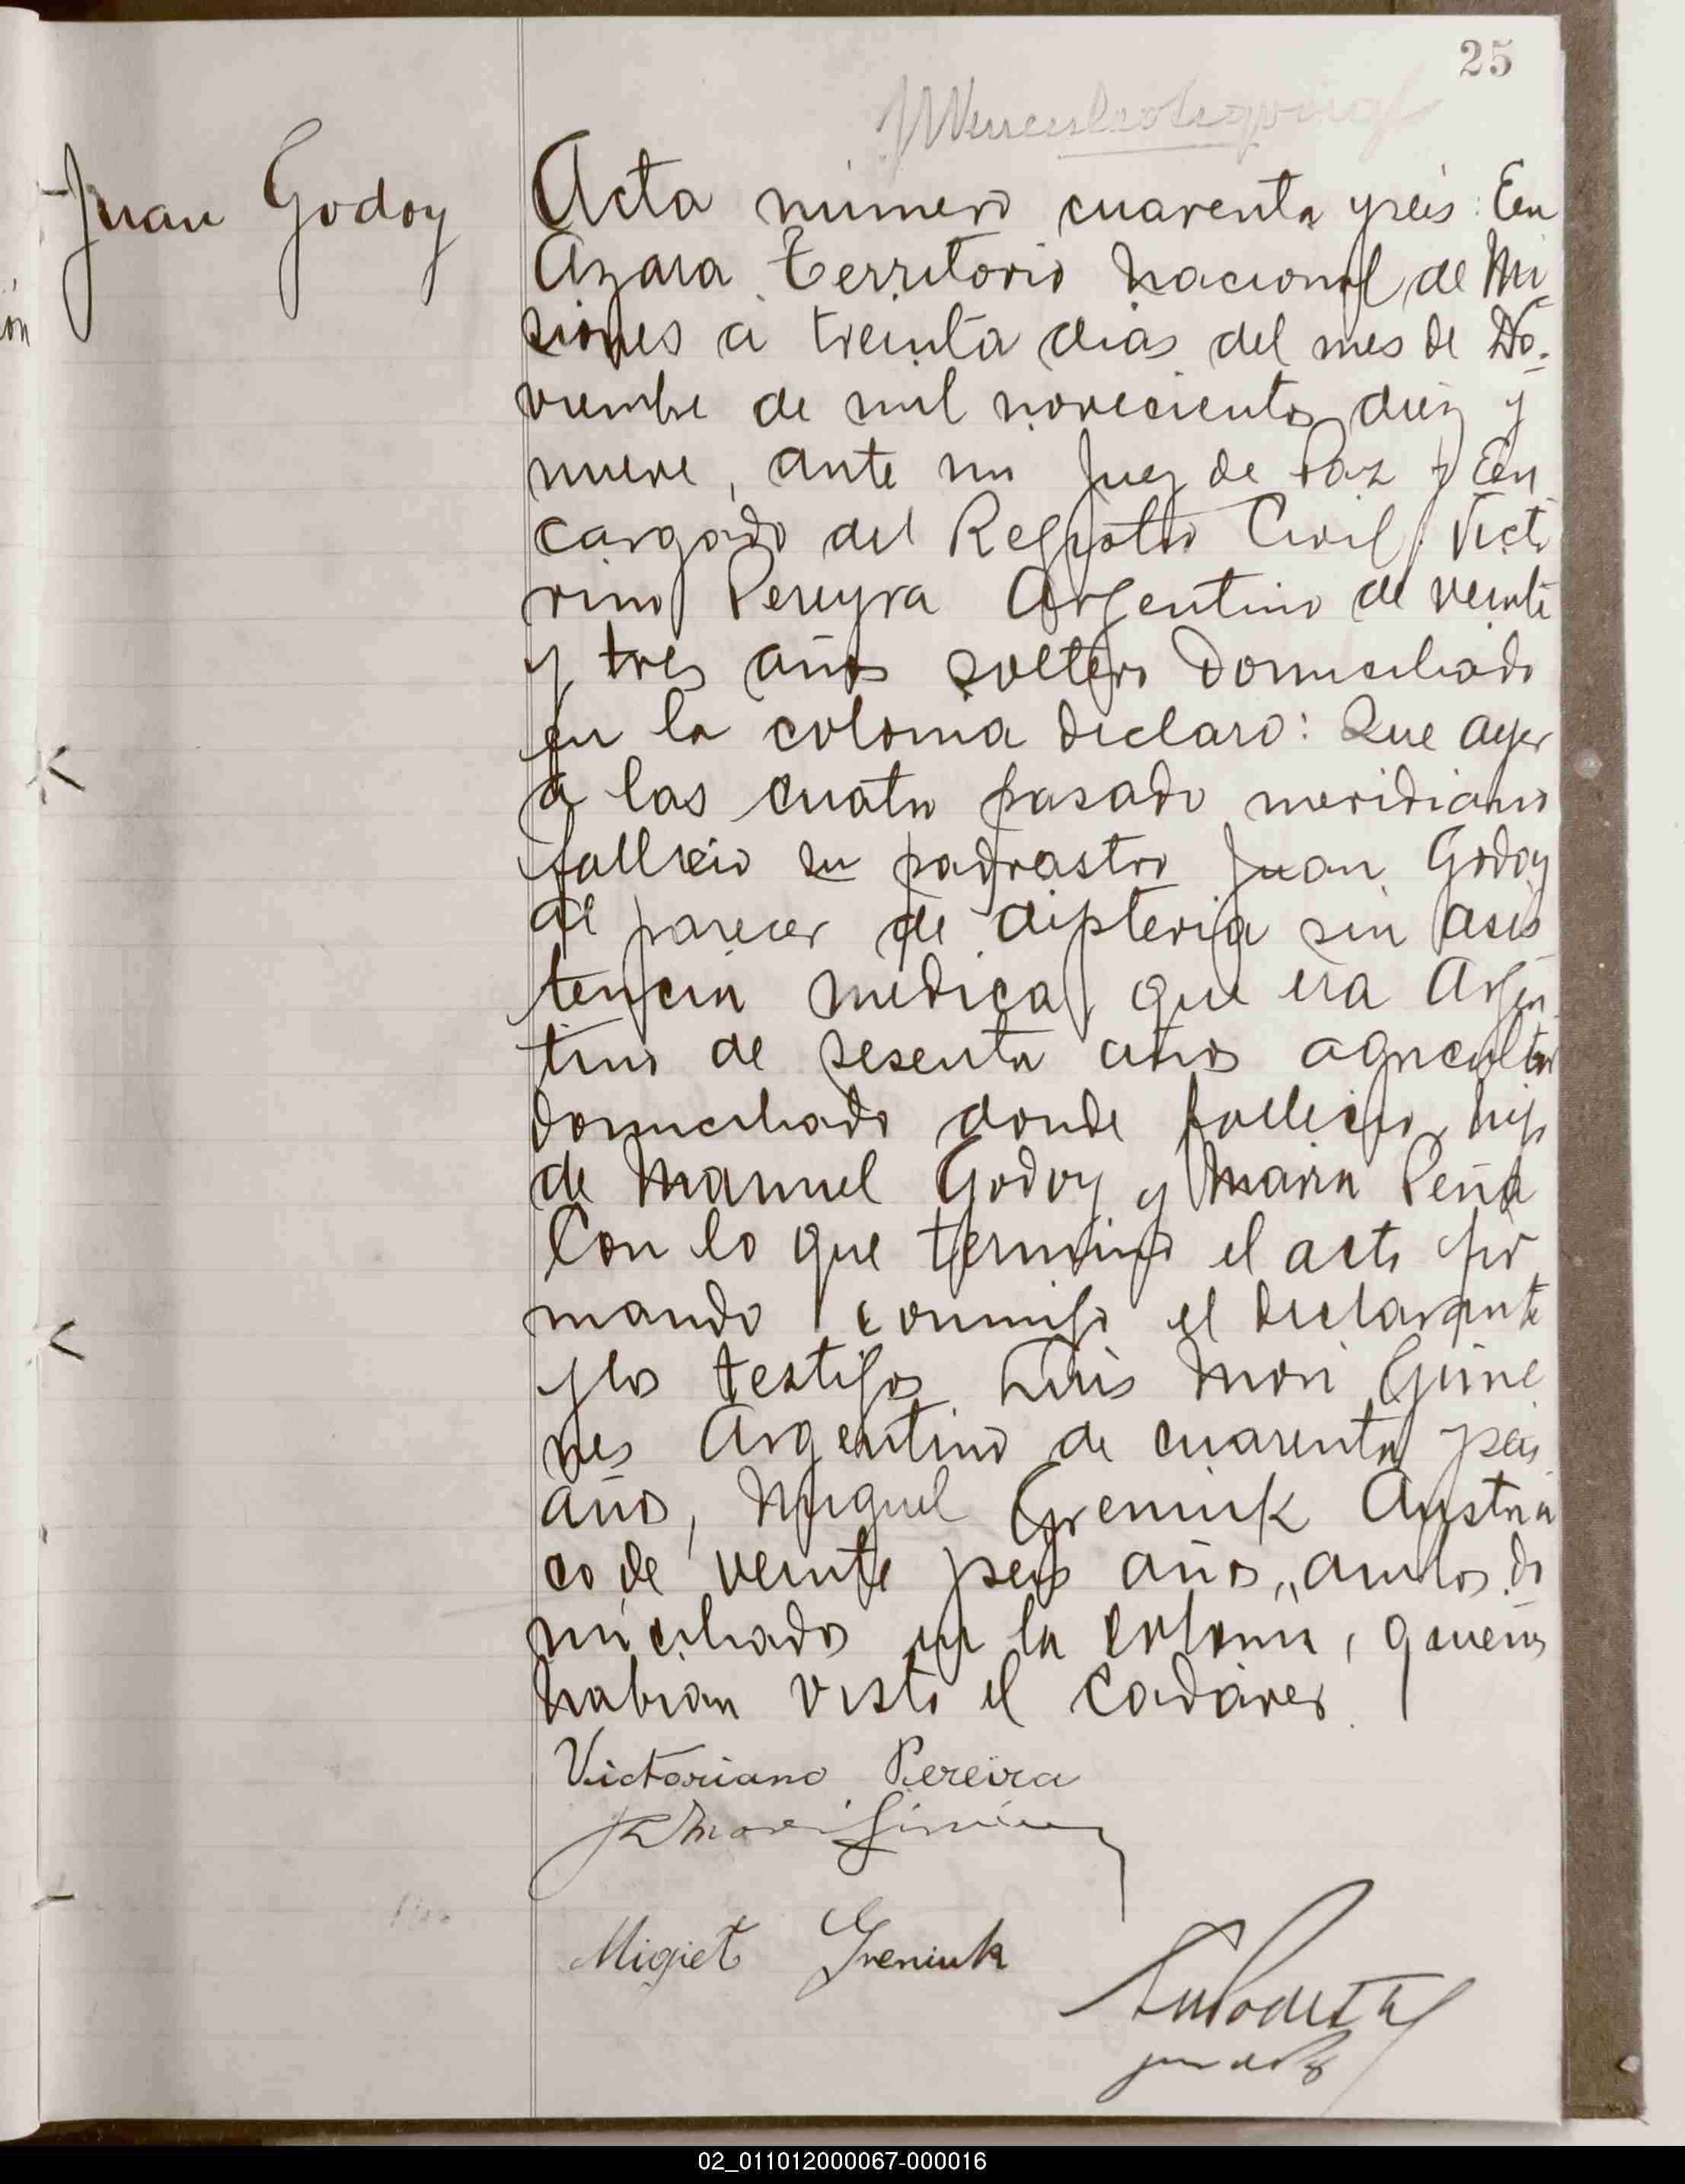 25
Juan Godoy
Acta número cuarenta y seis: En
Azara Territorio Nacional de Mi
siones a treinta dias del mes de No-
viembre de mil novecientos diez y
nueve, ante mi Juez de Paz y En
cargado del Registro Civil: Victo
rino Pereyra Argentino de veinte
y tres años soltero domiciliado
en la colonia declaro: Que ayer
a las cuatro pasado meridiano
fallecio su padrastro Juan Godoy
al parecer de dipteria sin asis
tencia medica, que era Argen
tino de sesenta años agricultor
domiciliado donde fallecio, hijo
de Manuel Godoy y Maria Peña
Con lo que termino el acto fir
mando conmigo el declarante
y los testigos Luis Mori Gime
nes Argentino de cuarenta y seis
años, Miguel Greniuk Austria
co de veinte y seis años, ambos do
miciliados en la colonia, quienes
habian visto el cadáver.
Victoriano Pereira
Mori Gimenez
Migiet Greniuk
juez de Paz
ón
02_011012000067-000016